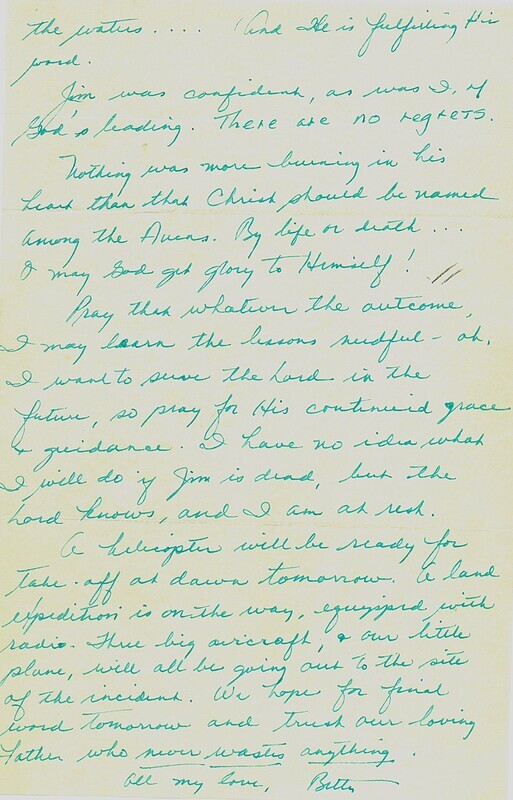 the waters .... (And He is fulfilling His
word.
Jim was confident, as was I, of
God's leading. There are no regrets.
Nothing was more burning in his
heart than that Christ should be named
among the Aucas. By life or death ....
O may God get glory to Himself!
Pray that whatever the outcome,
I may learn the lessons needful - oh,
I want to serve the Lord in the
future, so pray for His continued grace
& guidance. I have no idea what
I will do if Jim is dead, but the
Lord knows, and I am at rest.
A helicopter will be ready for
take-off at dawn tomorrow. A land
expedition is on the way, equipped with
radio. Three big aircraft, & our little
plane, will all be going out to the site
of the incident. We hope for final
word tomorrow and trust our loving
Father who never wastes anything.
All my love, Betty